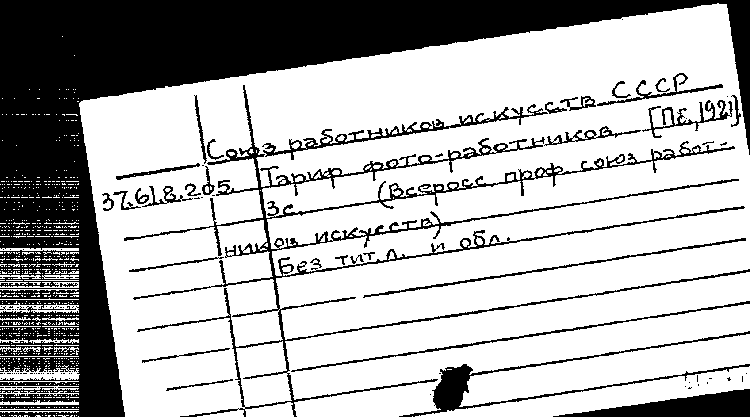 Союз работников искусств СССР
37.61.8.205. Тариф фото-работников. [Пб., 1921].
3с. (Всеросс. проф. союз работ-
ников искусств).
Без тит. л. и обл.